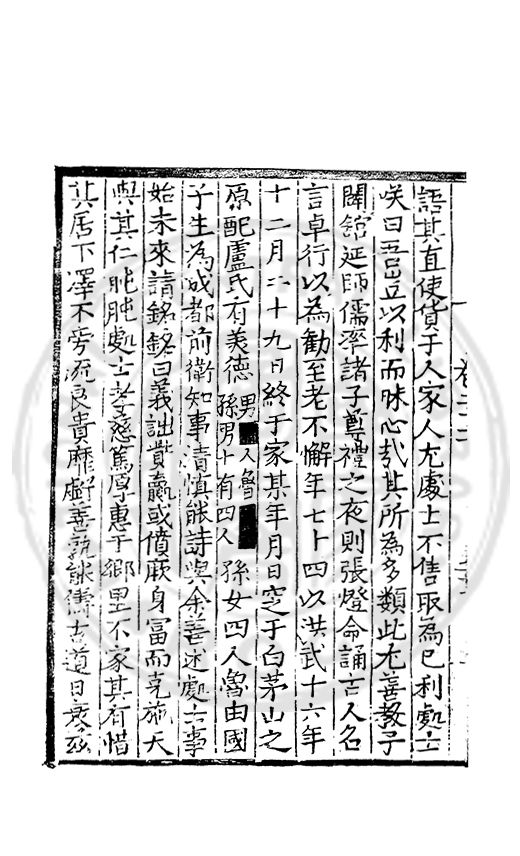 語其直使貸于人家人尤處士不售取為已利處士
咲曰吾豈以利而昧心哉其所為多類此尤善教子
闢舘延師儒率諸子尊禮之夜則張燈命誦古人名
言卓行以為勸至老不懈年七十四以洪武十六年
十二月二十九日終于家某年月日窆于白茅山之
原配盧氏有美德男人魯孫男十有四人孫女四人魯由國
子生為成都前衛知事清慎能詩與余善述處士事
始末來請銘銘曰義詘貲贏或僨厥身富而克施天
與其仁肫肫處士孝慈篤厚惠于鄉里不家其有惜
其居下澤不旁流貴靡善孰諸古道日衰茲